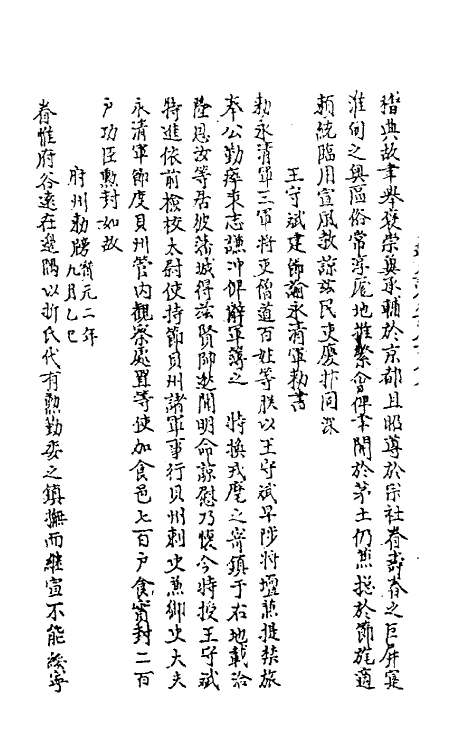 稽典故聿舉褒崇奠承輔於京都且昭尊於宗社眷壽春之巨屏寔
淮甸之奧區俗常淳厖地推繁會俾聿開於茅土仍焦揔於節旄適
賴統臨用宣風敎諒玆民吏慶抃同深
王守斌建節諭永清軍勑書
勑永清軍三軍將吏僧道百姓等朕以王守斌早陟將壇燕提禁旅
奉公勤瘁秉志謙冲俾解軍簿之　特換戎麾之寄鎮于右地載洽
隆恩汝等居彼藩城得法賢帥逖聞明命諒慰乃懷今特授王守斌
特進依前檢校太尉使持節貝州諸軍事行貝州刺史兼御史大夫
永清軍節度貝州管内觀察處置等使加食邑七百戶食實封二百
戶功臣勲封如故
府州勑牓
眷惟府谷遠在邊隅以折氏代有勲勤委之鎮撫而繼宣不能綏寧